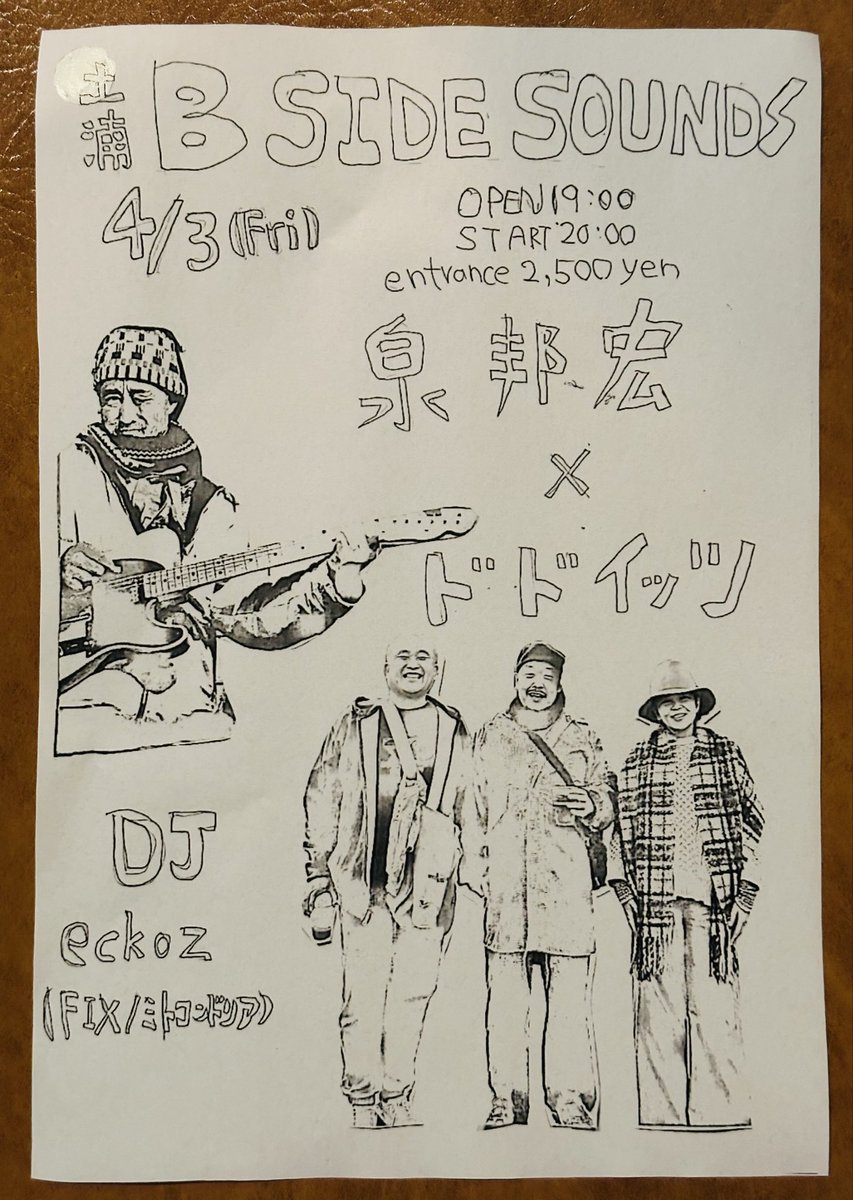 土浦 B SIDE SOUNDS
4/3 (Fri)
OPEN 19:00
START 20:00
entrance 2,500 yen
泉 邦宏
×
ドドイッツ
DJ
eckoz
(FIX/ミトコンドリア)